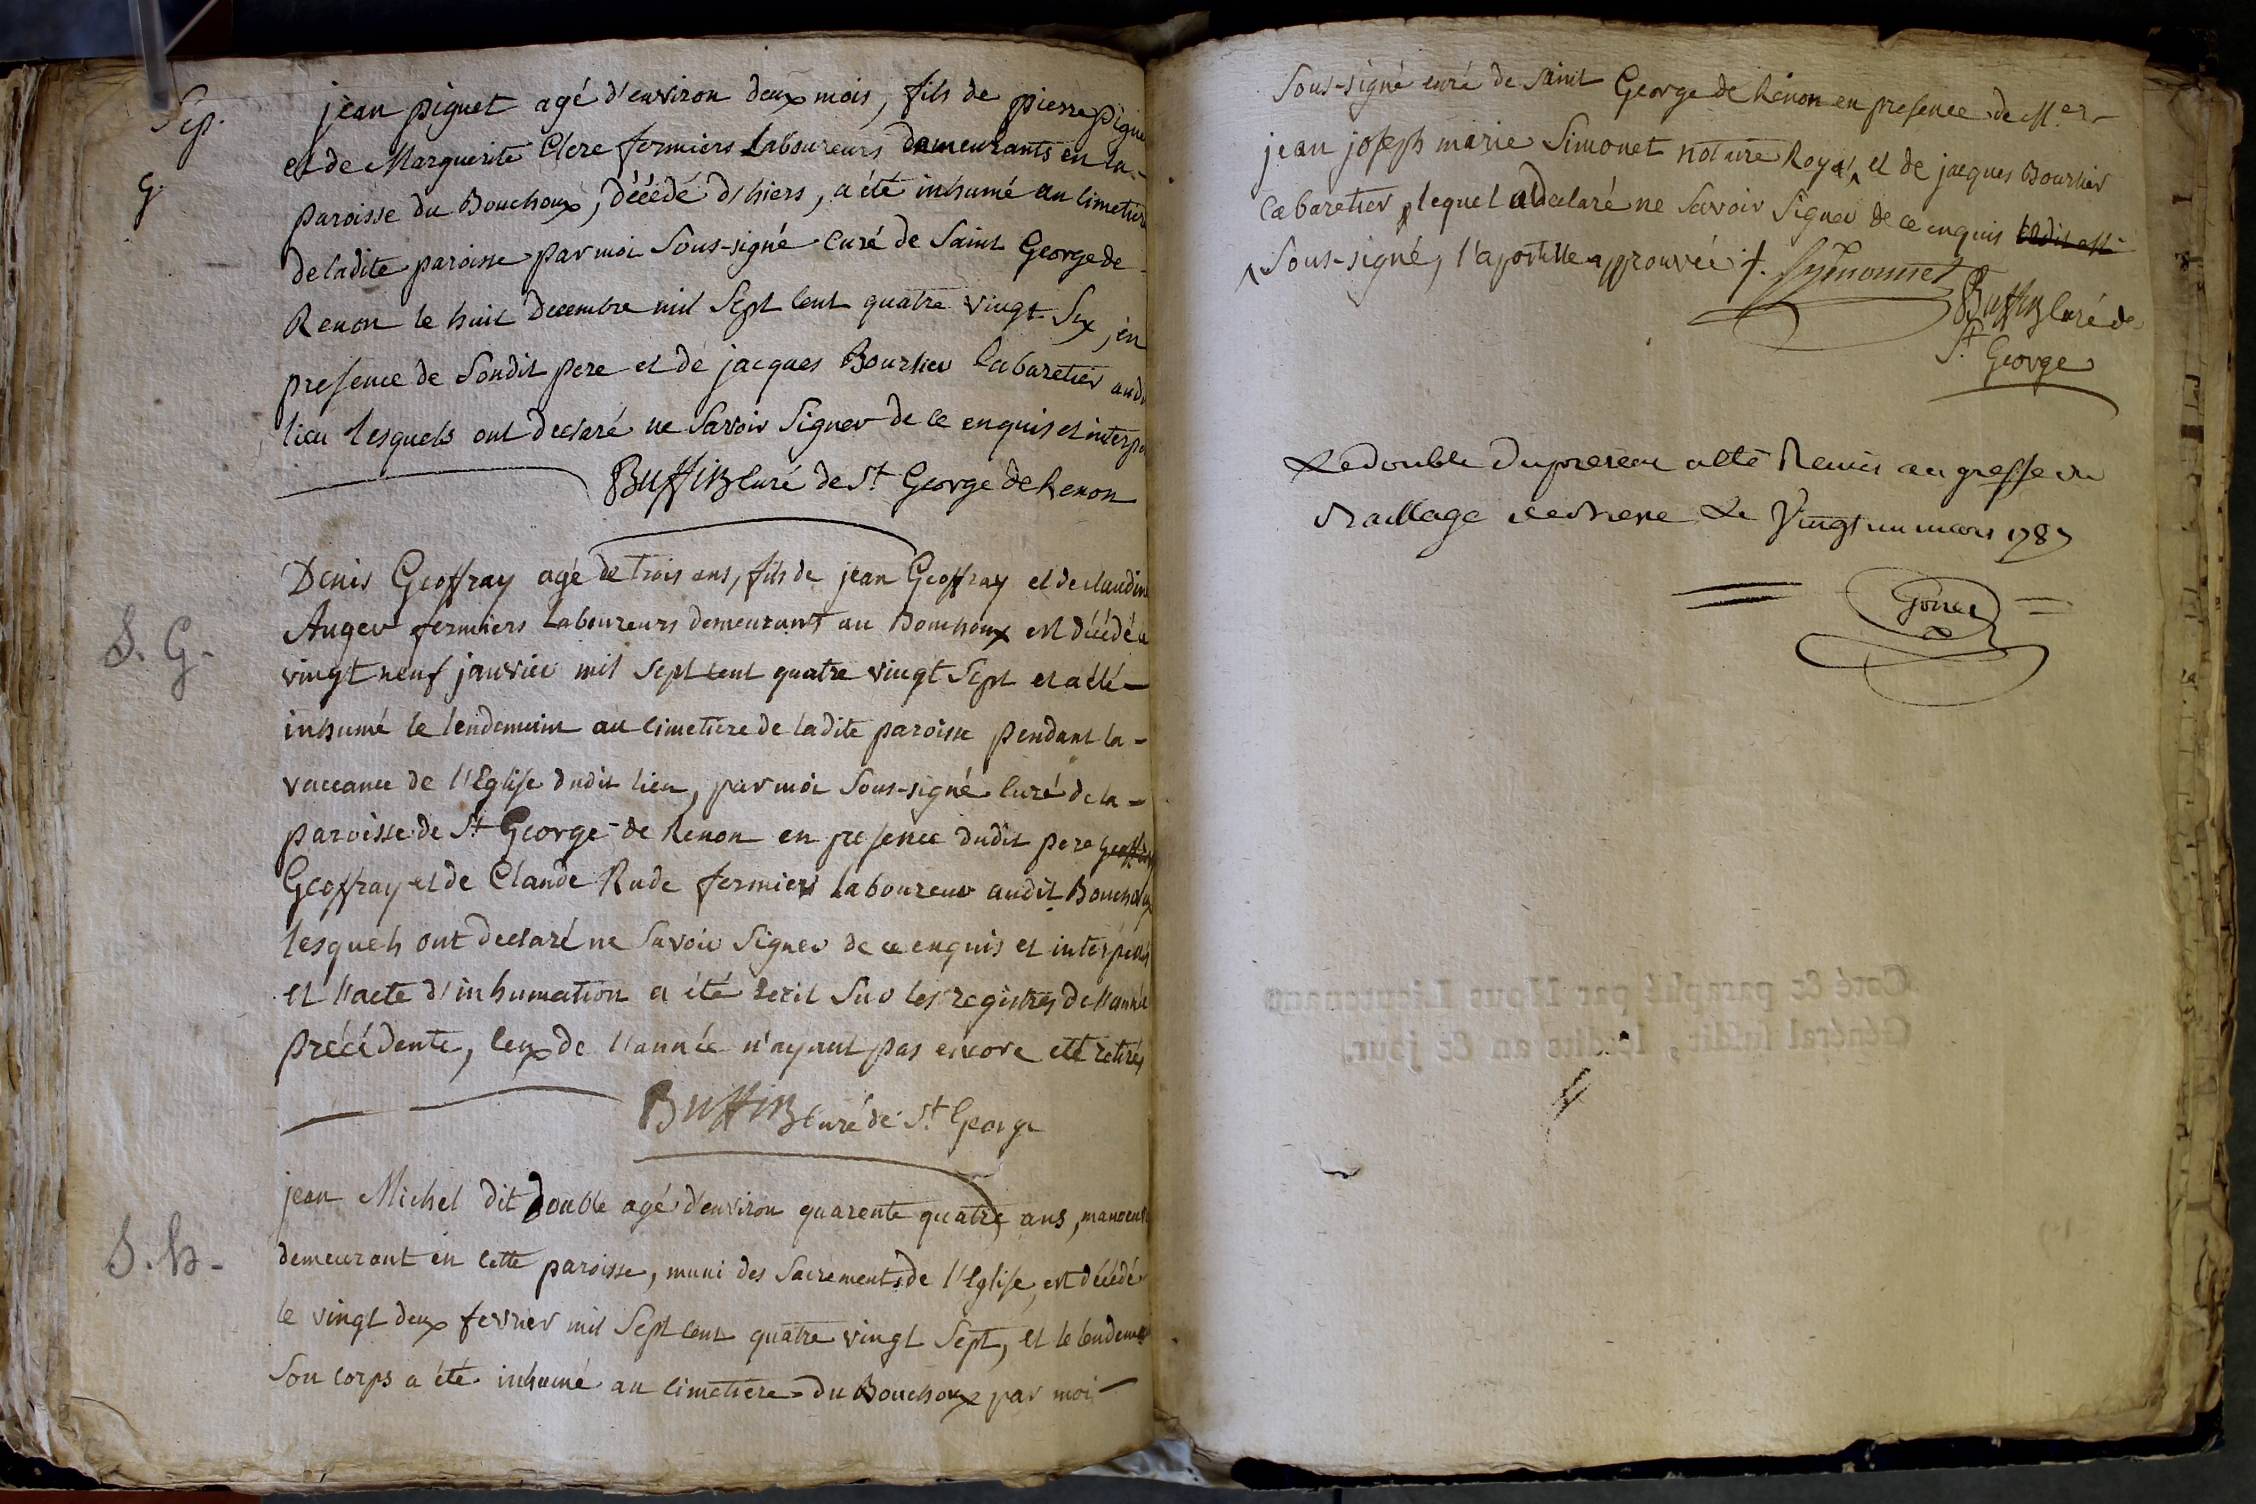 Sep.
g.
jean piguet agé d'environ deux mois, fils de pierre pigue
et de Marguerite Clere fermiers Laboureurs demeurants en la
paroisse du Bouchoux, décédé d'hiers, a été inhumé au Cimetiere
de ladite paroisse par moi Sous-signé Curé de Saint George de
Renon le huit Decembre mil Sept Cent quatre vingt Six, en
presence de Sondit pere et de jacques Bourlier Cabaretier aud
lieu lesquels ont declaré ne Savoir Signer de ce enquis et interpe
Buffin Curé de St George de Renon
S. G.
Denis Geoffray agé de trois ans, fils de jean Geoffray et de claudine
Auger fermiers Laboureurs demeurants au Bouchoux est décédé le
vingt neuf janvier mil Sept Cent quatre vingt Sept et a été
inhumé le lendemain au Cimetiere de ladite paroisse pendant la
vaccance de l'Eglise dudit lieu, par moi Sous-signé Curé de la
paroisse de St George de Renon en presence dudit pere Geoffray
Geoffray et de Claude Rude fermiers laboureur audit Bouchoux
lesquels ont declaré ne Savoir Signer de ce enquis et interpellés
et l'acte d'inhumation a été ecrit Sur les registres de l'année
précédente, Ceux de l'année n'ayant pas encore été retirés
Buffin Curé de St George
S. h.
jean Michel dit Double agé d'environ quarente quatre ans, manoeuvre
demeurant en Cette paroisse, muni des Sacrements de l'Eglise, est décédé
le vingt deux fevrier mil Sept Cent quatre vingt Sept, et le lendemain
Son Corps a été inhumé au Cimetiere du Bouchoux par moi
Sous-signé curé de Saint George de Renon en presence de Mer
jean joseph marie Simonet notaire Royal, et de jacques Bourlier
Cabaretier lequel a declaré ne Savoir Signer de ce enquis
Sous-signé, l'apostille approuvée. Symonnet
Buffin Curé de
St George
Le double du present a été Remis au greffe du
Baillage de Bresse Le Vingt un mars 1787
Coté & paraphé par Nous Lieutenant
Général susdit, lesdits an & jour.